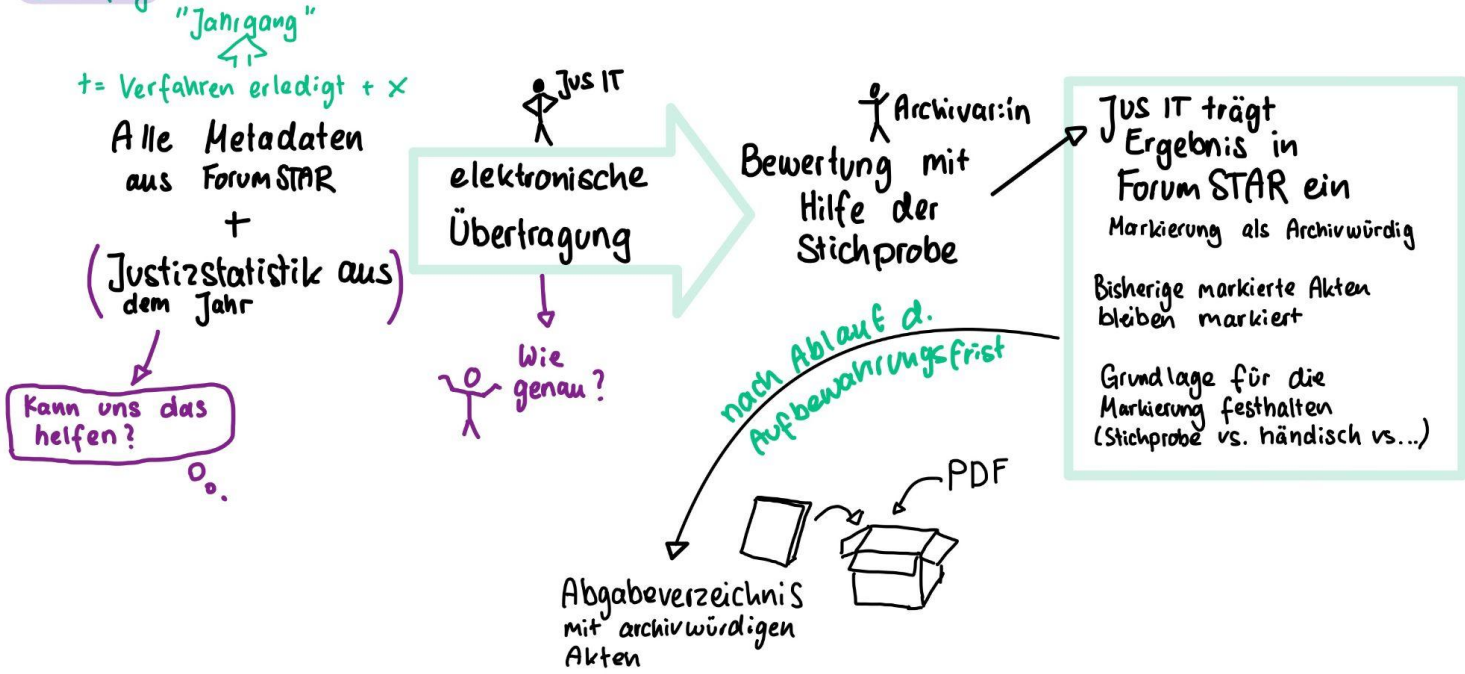 "Jahrgang"
t = Verfahren erledigt + x
Alle Metadaten
aus ForumSTAR
+
(Justizstatistik aus
dem Jahr)
Kann uns das
helfen?
Jus IT
elektronische
Übertragung
Wie
genau?
Archivar:in
Bewertung mit
Hilfe der
Stichprobe
Jus IT trägt
Ergebnis in
Forum STAR ein
Markierung als Archivwürdig
Bisherige markierte Akten
bleiben markiert
Grundlage für die
Markierung festhalten
(Stichprobe vs. händisch vs...)
nach Ablauf d.
Aufbewahrungsfrist
PDF
Abgabeverzeichnis
mit archivwürdigen
Akten